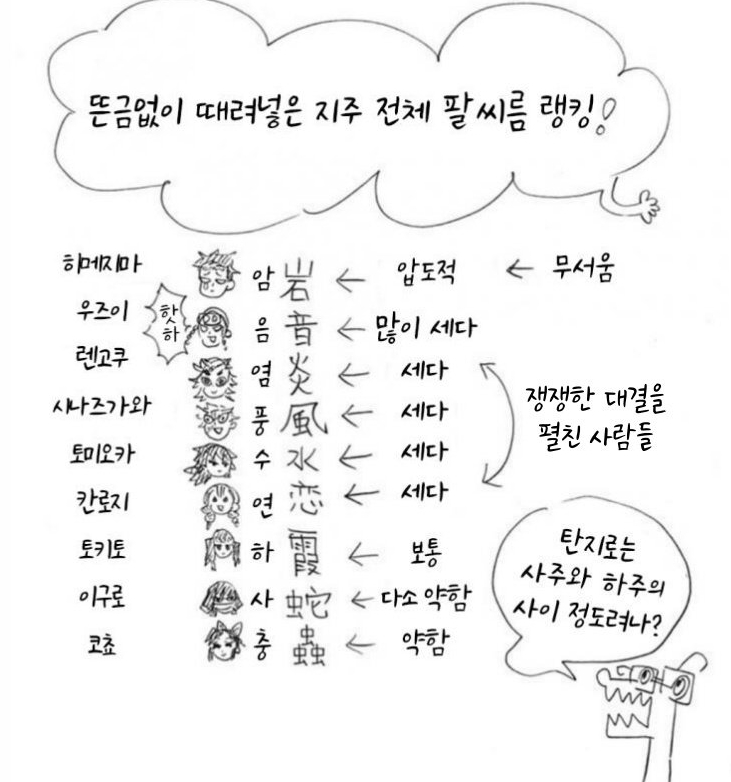 뜬금없이 때려넣은 지주 전체 팔씨름 랭킹!
히메지마 암 岩 ← 압도적 ← 무서움
우즈이 핫하 음 音 ← 많이 세다
렌고쿠 염 炎 ← 세다
시나즈가와 풍 風 ← 세다
토미오카 수 水 ← 세다
칸로지 연 恋 ← 세다
쟁쟁한 대결을
펼친 사람들
토키토 하 霞 ← 보통
이구로 사 蛇 ← 다소 약함
코쵸 충 蟲 ← 약함
탄지로는
사주와 하주의
사이 정도려나?